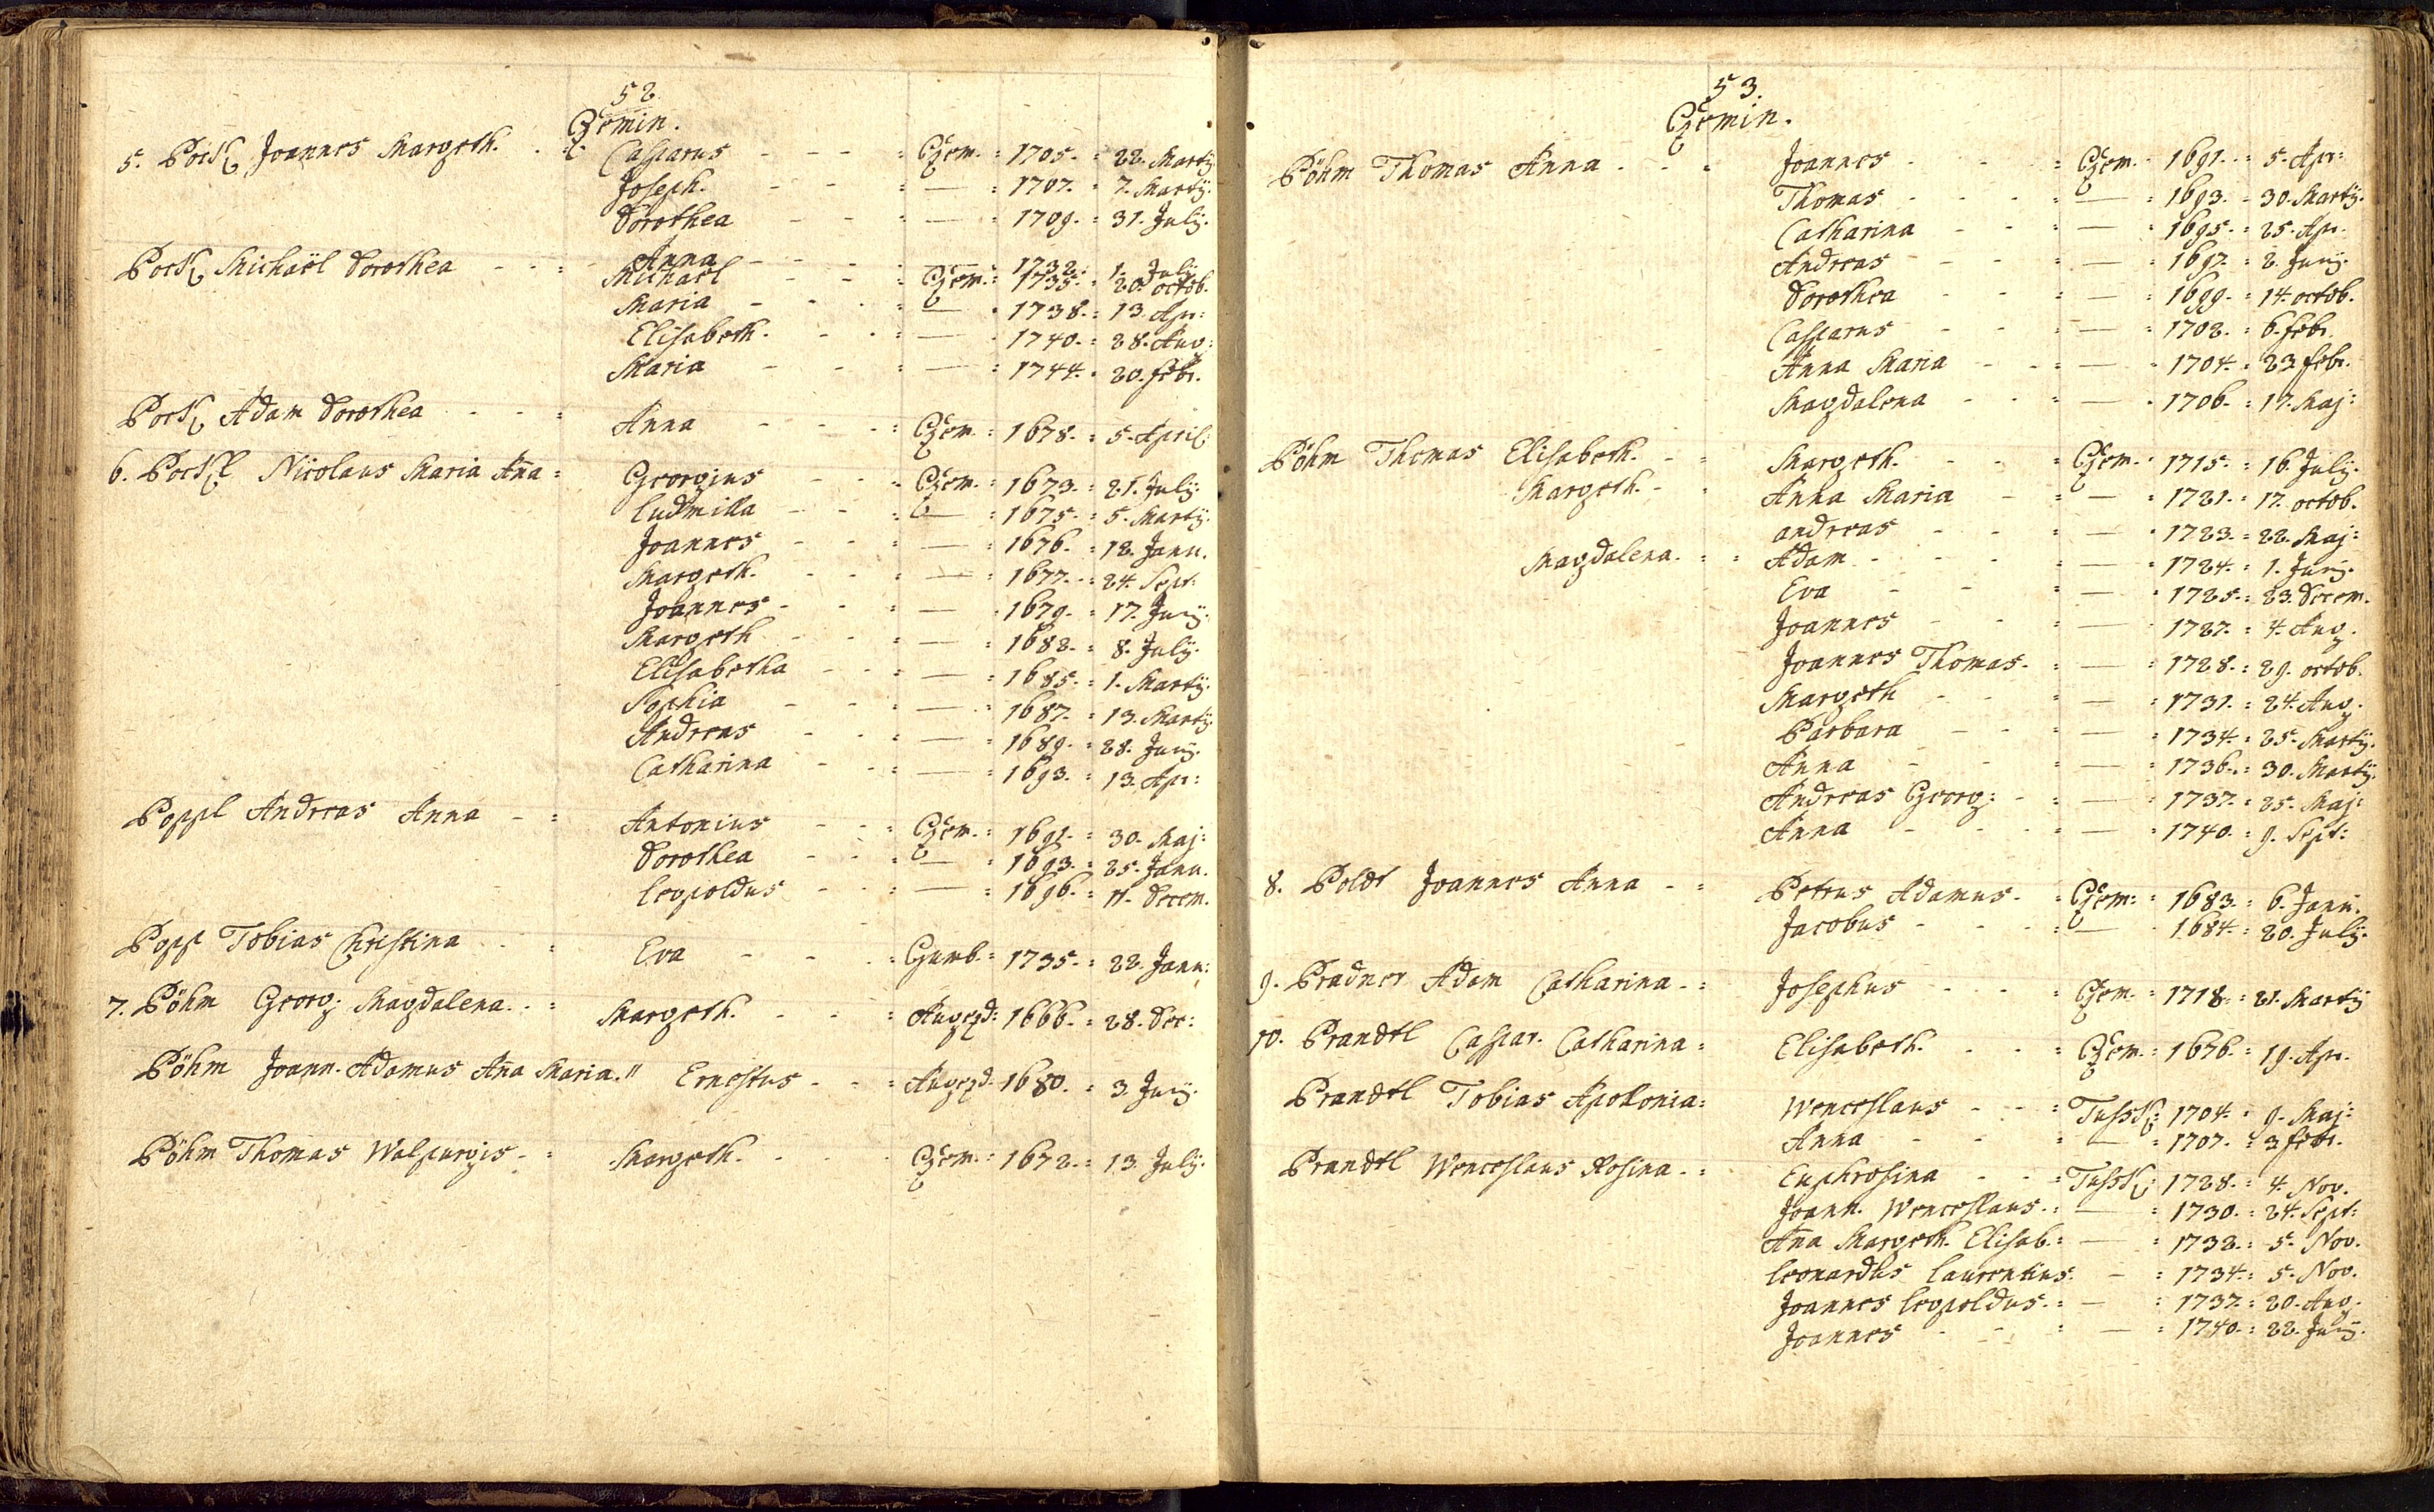 52.
Czemin.
5. Pöck Joannes Margeth. Casparus - - - Czem. 1705. 22. Martÿ
Joseph. - - — 1707. 7. Martÿ.
Dorothea - - — 1709. 31. Julÿ.
Anna - - — 1732. 1. Julÿ
Pock Michaël Dorothea - - Michaël - - Czem. 1735. 20. octob.
Maria - - — 1738. 13. Apr:
Elisabeth. - - — 1740. 28. Aug:
Maria - - — 1744. 20. Febr.
Pock Adam Dorothea - - Anna - - Czem. 1678. 5. April:
6. Pockl Nicolaus Maria Aña Georgius - - Czem. 1673. 21. Julÿ.
Ludmilla - - — 1675. 5. Martÿ.
Joannes - - — 1676. 12. Janu.
Margeth. - - — 1677. 24. Sept:
Joannes - - — 1679. 17. Junÿ.
Margeth - - — 1682. 8. Julÿ.
Elisabetha - - — 1685. 1. Martÿ.
Sophia - - — 1687. 13. Martÿ.
Andreas - - — 1689. 28. Junÿ.
Catharina - - — 1693. 13. Apr:
Poppl Andreas Anna - Antonius - - Czem. 1691. 30. Maj:
Dorothea - - — 1693. 25. Janu.
Leopoldus - - — 1696. 11. Decem.
Popp Tobias Christina Eva - - Gumb. 1735. 22. Janu:
7. Pöhm Georg: Magdalena. Margeth. - - Augezd: 1666. 28. Dec:
Pöhm Joann. Adamus Aña Maria. Ernestus - - Augezd. 1680. 3. Junÿ.
Pöhm Thomas Walpurgis - Margeth. - - Czem. 1672. 13. Julÿ.
53.
Czemin.
Pöhm Thomas Anna - - Joannes - - Czem. 1691. 5. Apr:
Thomas - - — 1693. 30. Martÿ.
Catharina - - — 1695. 25. Apr.
Andreas - - — 1697. 2. Junÿ.
Dorothea - - — 1699. 14. octob.
Casparus - - — 1702. 6. Febr.
Anna Maria - - — 1704. 23. Febr.
Magdalena - - — 1706. 17. Maj:
Pöhm Thomas Elisabeth. - Margeth. - - Czem. 1715. 16. Julÿ.
Margeth. - Anna Maria - — 1721. 17. octob.
andreas - - — 1723. 22. Maj:
Magdalena. Adam - - — 1724. 1. Junÿ.
Eva - - — 1725. 23. Decem.
Joannes - - — 1727. 4. Aug.
Joannes Thomas. — 1728. 29. octob.
Margeth - - — 1731. 24. Aug.
Barbara - - — 1734. 25. Martÿ.
Anna - - — 1736. 30. Martÿ.
Andreas Georg: - — 1737. 25. Maj:
Anna - - — 1740. 9. Sept:
8. Poldt Joannes Anna - Petrus Adamus. Czem: 1683. 6. Janu.
Jacobus - - — 1684. 20. Julÿ.
9. Pradner Adam Catharina - Josephus - - Czem. 1718. 21. Martÿ
10. Prandtl Caspar. Catharina Elisabeth. - - Czem. 1676. 19. Apr.
Prandtl Tobias Apolonia Wenceslaus - - 1704. 9. Maj:
Anna - - — 1707. 3 Febr.
Prandtl Wenceslaus Rosina - Euphrosina - 1728. 4. Nov.
Joann. Wenceslaus. — 1730. 24. Sept:
Aña Margeth. Elisab. — 1732. 5. Nov.
Leonardus Laurentius. — 1734. 5. Nov.
Joannes Leopoldus. — 1737. 20. Aug.
Joannes - - — 1740. 22. Junÿ.